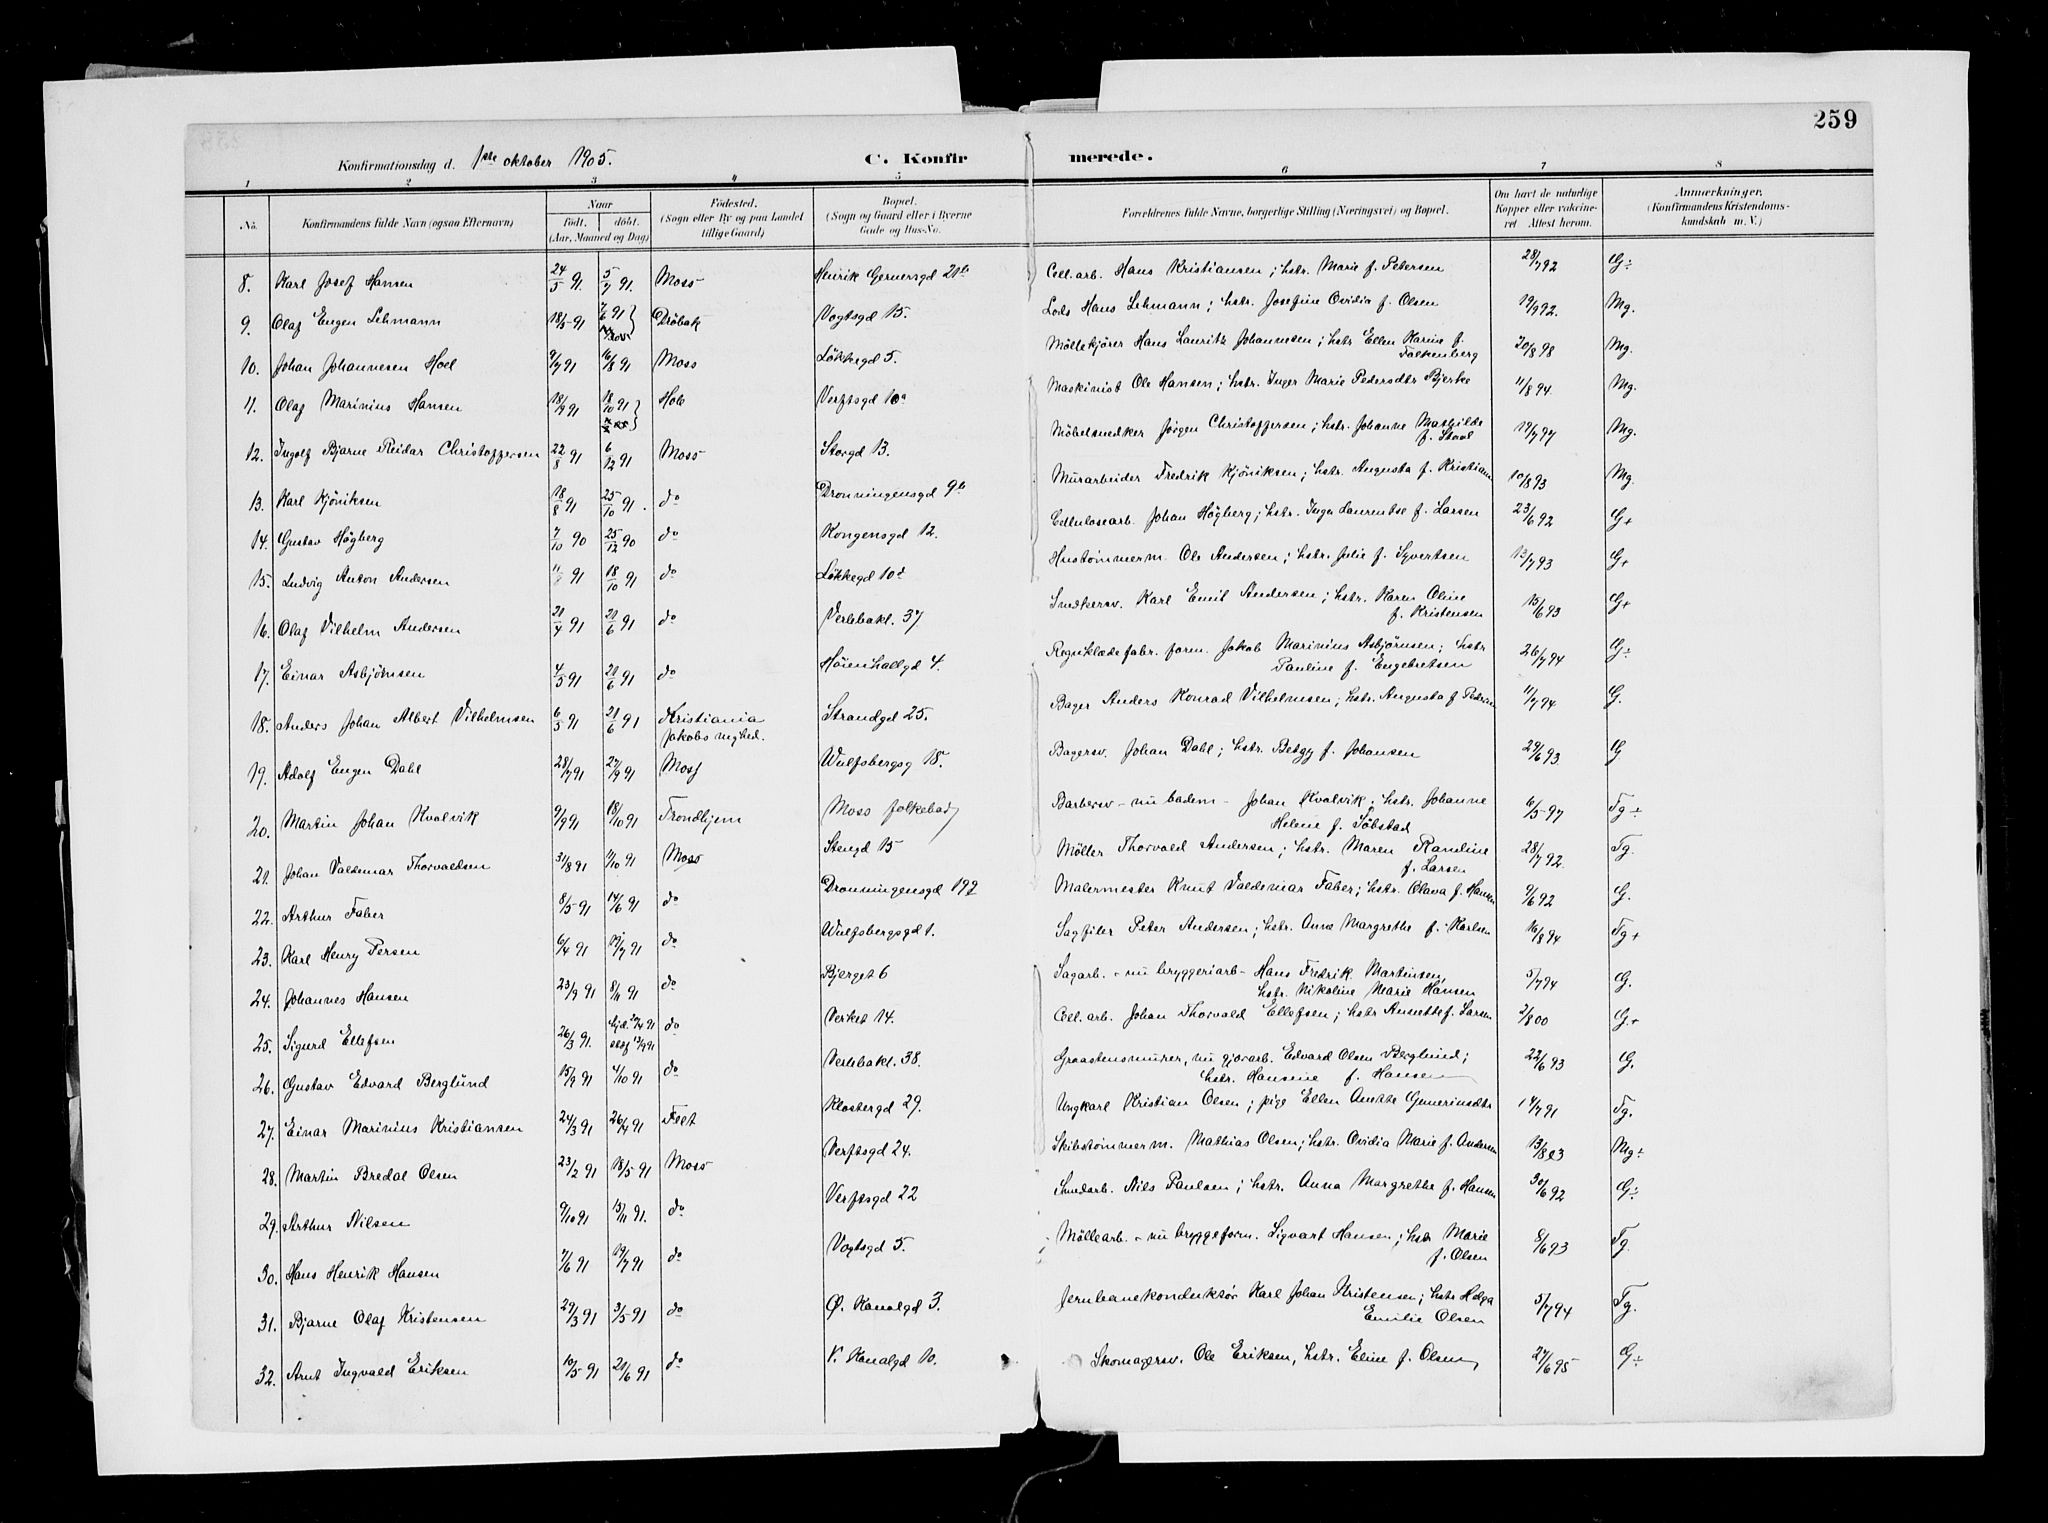 259
Konfirmationsdag d. 1ste oktober 1905. C. Konfirmerede.
1 2 3 4 5 6 7 8
No. Konfirmandens fulde Navn (ogsaa Efternavn) Naar født. døbt. (Aar, Maaned og Dag) Fødested. (Sogn eller By og paa Landet tillige Gaard) Bopæl. (Sogn og Gaard eller i Byerne Gade og Hus-No. Forældrenes fulde Navne, borgerlige Stilling (Næringsvei) og Bopæl. Om havt de naturlige Kopper eller vakcineret Attest herom. Anmærkninger. (Konfirmandens Kristendomskundskab m. V.)
8. Karl Josef Hansen 24/5 91. 5/7 91. Moss Henrik Gernersgd 21b Cell. arb. Hans Kristiansen; hstr. Marie f. Petersen 28/7 92 G÷
9. Olaf Eugen Lehmann 18/5 91 7/6 91 Drøbak Vogtsgd 15. Lods Hans Lehmann; hstr. Josefine Ovidia f. Olsen 19/9 92. Mg.
10. Johan Johannesen Hoel 9/7 91 16/8 91 Moss Løkkegd 5. Møllekjører Hans Lauritz Johannesen; hstr Ellen Karine f. Falkenberg 30/8 98 Mg.
11. Olaf Marinius Hansen 18/9 91 18/10 91 Hole Verftsgd 10a Maskinist Ole Hansen; hstr. Inger Marie Pedersdtr Bjerke 11/8 94. Mg.
12. Ingolf Bjarne Reidar Christoffersen 22/8 91 6/12 91 Moss Storgd 13. Møbelsnedker Jørgen Christoffersen; hstr. Johanne Mathilde f. Staal 17/7 97 Mg.
13. Karl Kjøniksen 18/8 91 25/10 91. do Dronningensgd 9b Murarbeider Fredrik Kjøniksen; hstr. Augusta f. Kristians 10/8 93 Mg.
14. Gustav Høgberg 7/10 90 25/12 90 do Kongensgd 12. Cellulosearb. Johan Høgberg; hstr. Inger Laurentse f. Larsen 23/6 92 G+
15. Ludvig Anton Andersen 91 18/10 91 do Løkkegd 10d Hustømmerm. Ole Andersen; hstr. Julie f. Syvertsen 13/7 93 G+
16. Olaf Vilhelm Andersen 20/4 91 21/6 91 do Verlebakl. 37 Snedkersv. Karl Emil Andersen; hstr. Karen Oline f. Kristensen 15/6 93 G+
17. Einar Asbjørnsen 4/5 91 21/6 91 do Høienhallgd 4. Regnklædefabr. form. Jakob Marinius Asbjørnsen; hstr Pauline f. Engebretsen 26/7 94 G÷
18. Anders Johan Albert Vilhelmsen 6/5 91 21/6 91 Kristiania Jakobs mghed. Strandgd 25. Bager Anders Konrad Vilhelmsen; hstr. Augusta f Pedersen 11/7 94 G.
19. Adolf Eugen Dahl 28/7 91 27/9 91 Moss Wulfsbergsg 18. Bagersv. Johan Dahl; hstr. Betzy f. Johansen 29/6 93. G
20. Martin Johan Kvalvik 9/9 91 18/10 91 Trondhjem Moss folkebad Barbersv - nu badem - Johan Kvalvik; hstr. Johanne Helene f. Søbstad 6/5 97 Tg÷
21. Johan Valdemar Thorvaldsen 31/8 91 11/10 91 Moss Stengd 15 Møller Thorvald Andersen; hstr. Maren Pauline f. Larsen 28/7 92. Tg.
22. Arthur Faber 8/5 91 14/6 91 do Dronningensgd 19 Malermester Knut Valdemar Faber; hstr. Olava f. Hansen 9/6 92 G.
23. Karl Henry Persen 6/4 91 19/7 91 do Wulfsbergsgd 1. Sagfiler Peter Andersen; hstr. Anne Margrethe f. Karlsen 16/8 94 Tg+
24. Johannes Hansen 23/9 91 8/11 91 do Bjerget 6 Sagarb. - nu bryggeriarb - Hans Fredrik Martinsen, hstr. Nikoline Marie Hansen 5/7 94 G.
25. Sigurd Ellefsen 26/3 91. hjd. 20/4 91 do Verket 14. Cell. arb. Johan Thorvald Ellefsen; hstr Annette f. Larsen 2/8 00 G+
26. Gustav Edvard Berglund 15/9 91 4/10 91 do Verlebakl. 38. Graastensmurer, nu gjørarb. Edvard Olsen Berglund; hstr. Hansine f. Hansen 22/6 93 G.
27. Einar Marinius Kristiansen 24/3 91 26/4 91 Feet Klostergd 29. Ungkarl Kristian Olsen; pige Ellen Anette Gunerinsdtr 14/7 91 Tg.
28. Martin Bredal Olsen 23/2 91 18/5 91 Moss Verftsgd 24. Skibstømmerm. Mathias Olsen; hstr. Ovidia Marie f. Andersen 13/8 03 Mg÷
29. Arthur Nilsen 9/10 91 15/11 91. do Verftsgd 22 Smedarb. Nils Paulsen; hstr. Anna Margrethe f. Hansen 30/6 92 G÷
30. Hans Henrik Hansen 7/6 91 19/7 91 do Vogtsgd 5. Møllearb. - nu bryggeform. Sigvart Hansen; hstr Marie f. Olsen 8/6 93 Tg.
31. Bjarne Olaf Kristensen 29/3 91 3/5 91 do Ø. Kanalgd 3. Jernbanekonduktør Karl Johan Kristensen; hstr Helga Emilie Olsen 5/7 94 Tg.
32. Arnt Ingvald Eriksen 10/5 91 21/6 91 do V. Kanalgd 10. Skomagersv. Ole Eriksen, hstr. Eline f. Olsen 27/6 95 G÷